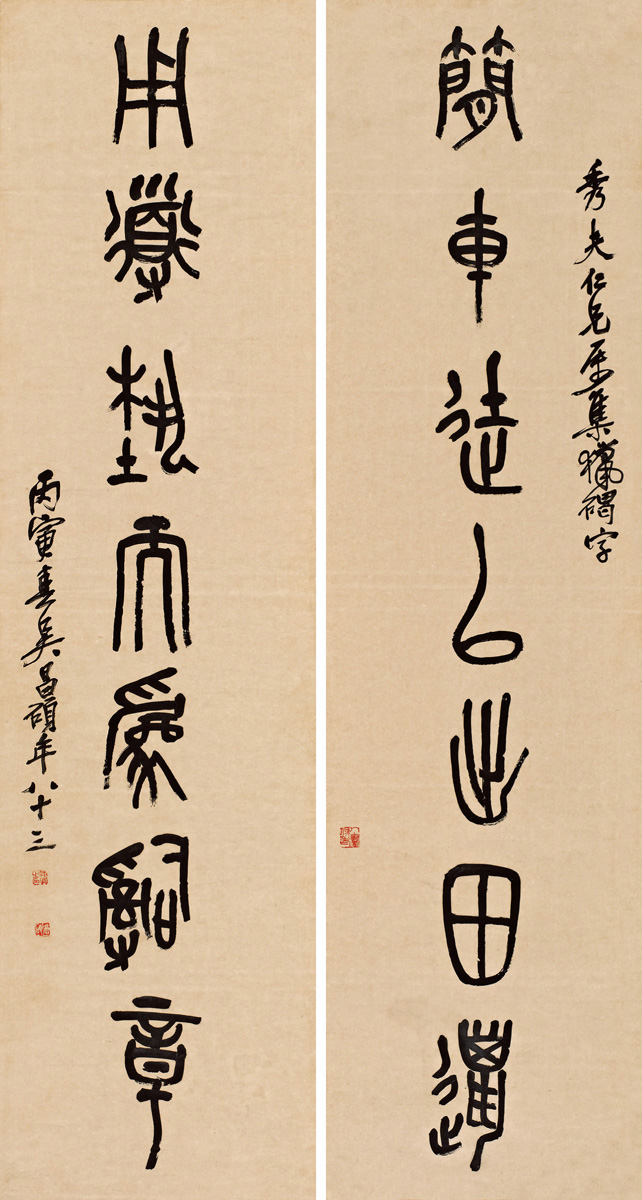 秀夫仁兄屬集獵碣字
簡車徒以出田邋
用導埶而為辭章
丙寅春吳昌碩年八十三